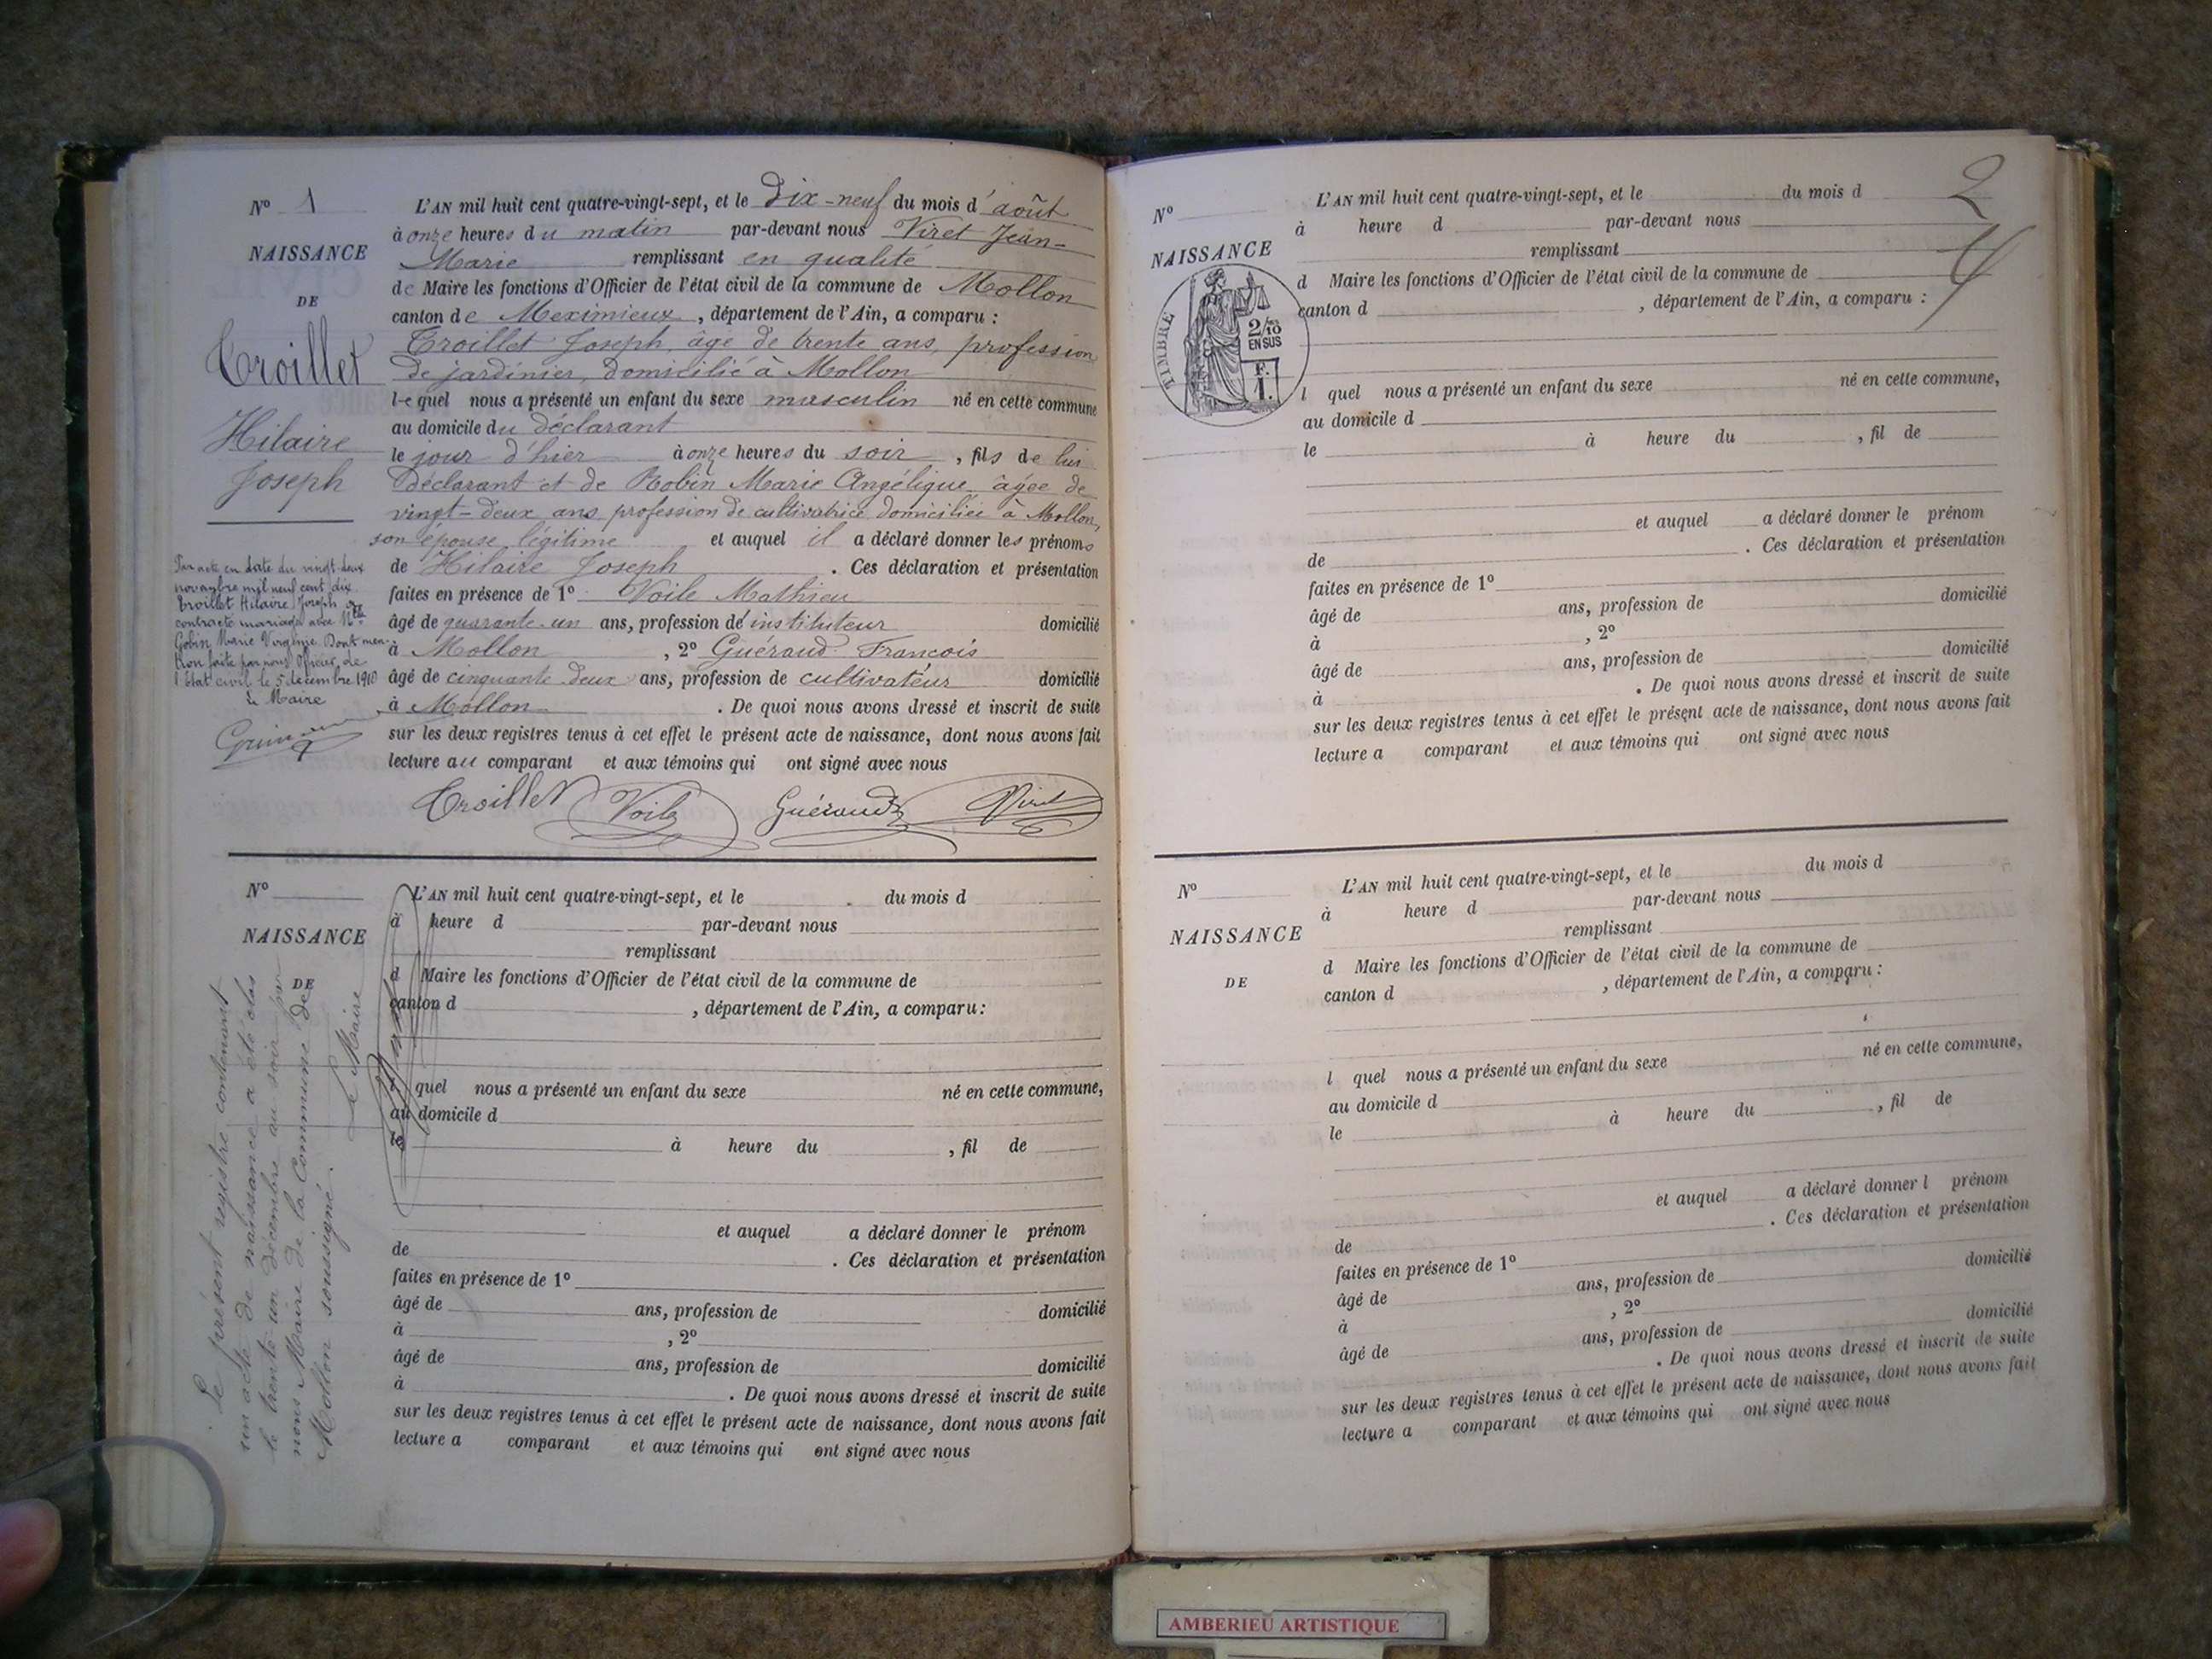 N° 1
NAISSANCE
DE
Troillet
Hilaire
Joseph
Par acte en date du vingt-deux
novembre mil neuf cent dix
Troillet Hilaire Joseph a
contracté mariage avec Mlle
Gobin Marie Virginie Dont men-
tion faite par nous Officier de
l'état civil le 5 décembre 1910
Le Maire
L'AN mil huit cent quatre-vingt-sept, et le Dix-neuf du mois d'août
à onze heures du matin par-devant nous Viret Jean-
Marie remplissant en qualité
de Maire les fonctions d'Officier de l'état civil de la commune de Mollon
canton de Meximieux, département de l'Ain, a comparu :
Troillet Joseph, âgé de trente ans, profession
de jardinier, domicilié à Mollon
lequel nous a présenté un enfant du sexe masculin né en cette commune
au domicile du déclarant
le jour d'hier à onze heures du soir, fils de lui
déclarant et de Robin Marie Angélique âgée de
vingt-deux ans profession de cultivatrice domiciliée à Mollon,
son épouse légitime et auquel il a déclaré donner les prénoms
de Hilaire Joseph. Ces déclaration et présentation
faites en présence de 1° Voile Mathieu
âgé de quarante-un ans, profession de instituteur domicilié
à Mollon, 2° Guéraud François
âgé de cinquante-deux ans, profession de cultivateur domicilié
à Mollon. De quoi nous avons dressé et inscrit de suite
sur les deux registres tenus à cet effet le présent acte de naissance, dont nous avons fait
lecture au comparant et aux témoins qui ont signé avec nous
Troillet Voile Guéraud Viret
N°
NAISSANCE
DE
Le présent registre contenant
un acte de naissance a été clos
le trente un décembre au soir par
nous Maire de la Commune de
Mollon soussigné.
Le Maire
L'AN mil huit cent quatre-vingt-sept, et le du mois d
à heure d par-devant nous
remplissant
d Maire les fonctions d'Officier de l'état civil de la commune de
canton d , département de l'Ain, a comparu :
quel nous a présenté un enfant du sexe né en cette commune,
au domicile d
le à heure du , fil de
et auquel a déclaré donner le prénom
de . Ces déclaration et présentation
faites en présence de 1°
âgé de ans, profession de domicilié
à , 2°
âgé de ans, profession de domicilié
à . De quoi nous avons dressé et inscrit de suite
sur les deux registres tenus à cet effet le présent acte de naissance, dont nous avons fait
lecture a comparant et aux témoins qui ont signé avec nous
2
N°
NAISSANCE
TIMBRE
2/10
EN SUS
F.
1.
L'AN mil huit cent quatre-vingt-sept, et le du mois d
à heure d par-devant nous
remplissant
d Maire les fonctions d'Officier de l'état civil de la commune de
canton d , département de l'Ain, a comparu :
l quel nous a présenté un enfant du sexe né en cette commune,
au domicile d
le à heure du , fil de
et auquel a déclaré donner le prénom
de . Ces déclaration et présentation
faites en présence de 1°
âgé de ans, profession de domicilié
à , 2°
âgé de ans, profession de domicilié
à . De quoi nous avons dressé et inscrit de suite
sur les deux registres tenus à cet effet le présent acte de naissance, dont nous avons fait
lecture a comparant et aux témoins qui ont signé avec nous
N°
NAISSANCE
DE
L'AN mil huit cent quatre-vingt-sept, et le du mois d
à heure d par-devant nous
remplissant
d Maire les fonctions d'Officier de l'état civil de la commune de
canton d , département de l'Ain, a comparu :
l quel nous a présenté un enfant du sexe né en cette commune,
au domicile d
le à heure du , fil de
et auquel a déclaré donner l prénom
de . Ces déclaration et présentation
faites en présence de 1°
âgé de ans, profession de domicilié
à , 2°
âgé de ans, profession de domicilié
à . De quoi nous avons dressé et inscrit de suite
sur les deux registres tenus à cet effet le présent acte de naissance, dont nous avons fait
lecture a comparant et aux témoins qui ont signé avec nous
AMBERIEU ARTISTIQUE